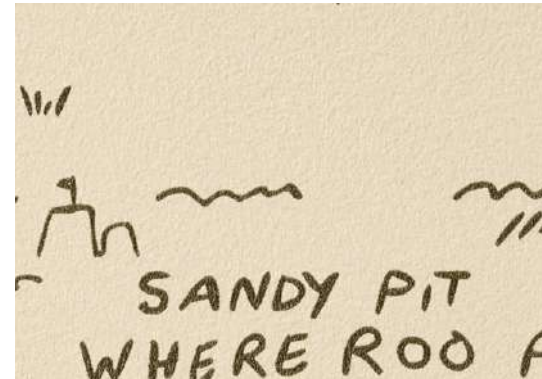 SANDY PIT
WHERE ROO